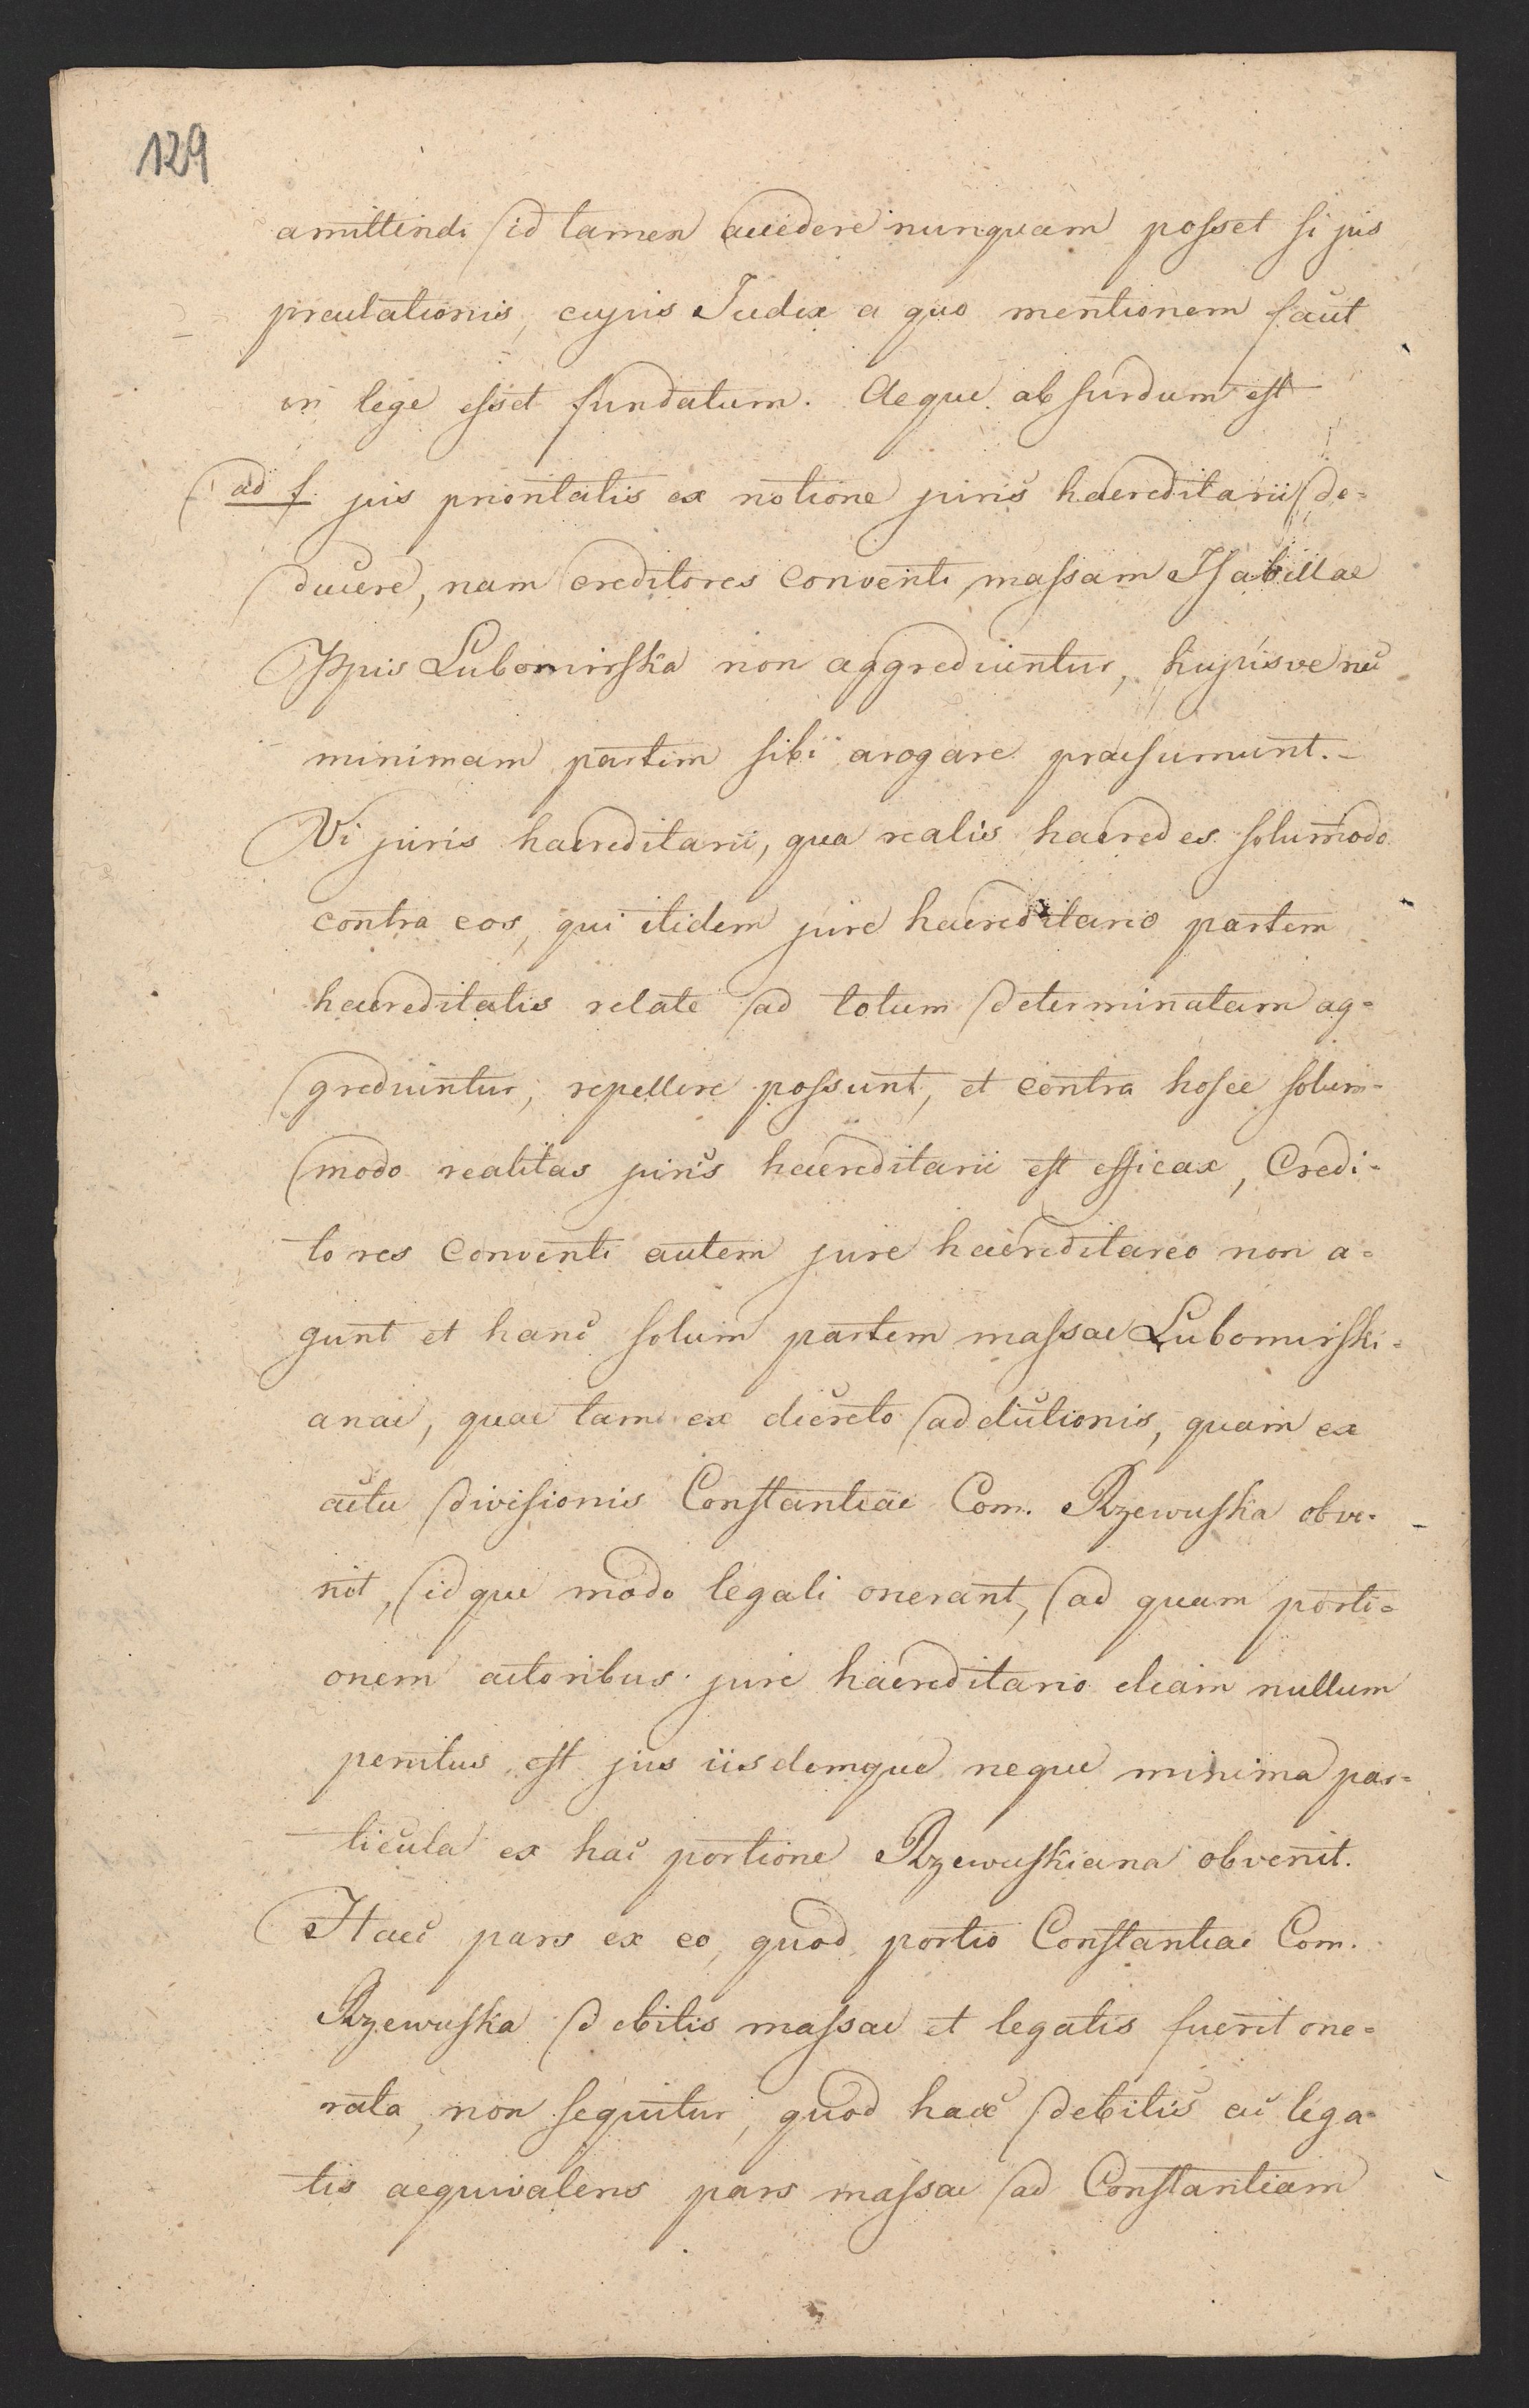 129
amittendi id tamen accedere nunquam posset si jus
precentationis, cujus Judex a quo mentionem facit
in lege esset fundatum. Aeque absurdum est
ad f. jus prioritatis ex notione juris haereditarii de=
ducere, nam creditores conventi massam Isabellae
Ppis Lubomirska non aggrediuntur, hujusve nec
minimam partem sibi arogare praesumunt.-
Vi juris haereditarii, qua realis haeredes solummodo
contra eos, qui itidem jure haereditario partem
haereditatis relate ad totum determinatam ag=
grediuntur, repellere possunt, et contra hosce solum=
modo realitas juris haereditarii est efficax, Credi=
tores conventi autem jure haereditario non a=
gunt et hanc solum partem massae Lubomirski=
anae, quae tam ex decreto addictionis, quam ex
actu divisionis Constantiae Com. Rzewuska obve=
nit, idque modo legali onerant, ad quam porti=
onem actoribus jure haereditario etiam nullum
penitus est jus iisdemque neque minima par=
ticula ex hac portione Rzewuskiana obvenit.
Haec pars ex eo, quod portio Constantiae Com.
Rzewuska debitis massae et legatis fuerit one=
rata, non sequitur, quod haec debitis ac lega=
tis aequivalens pars massae ad Constantiam